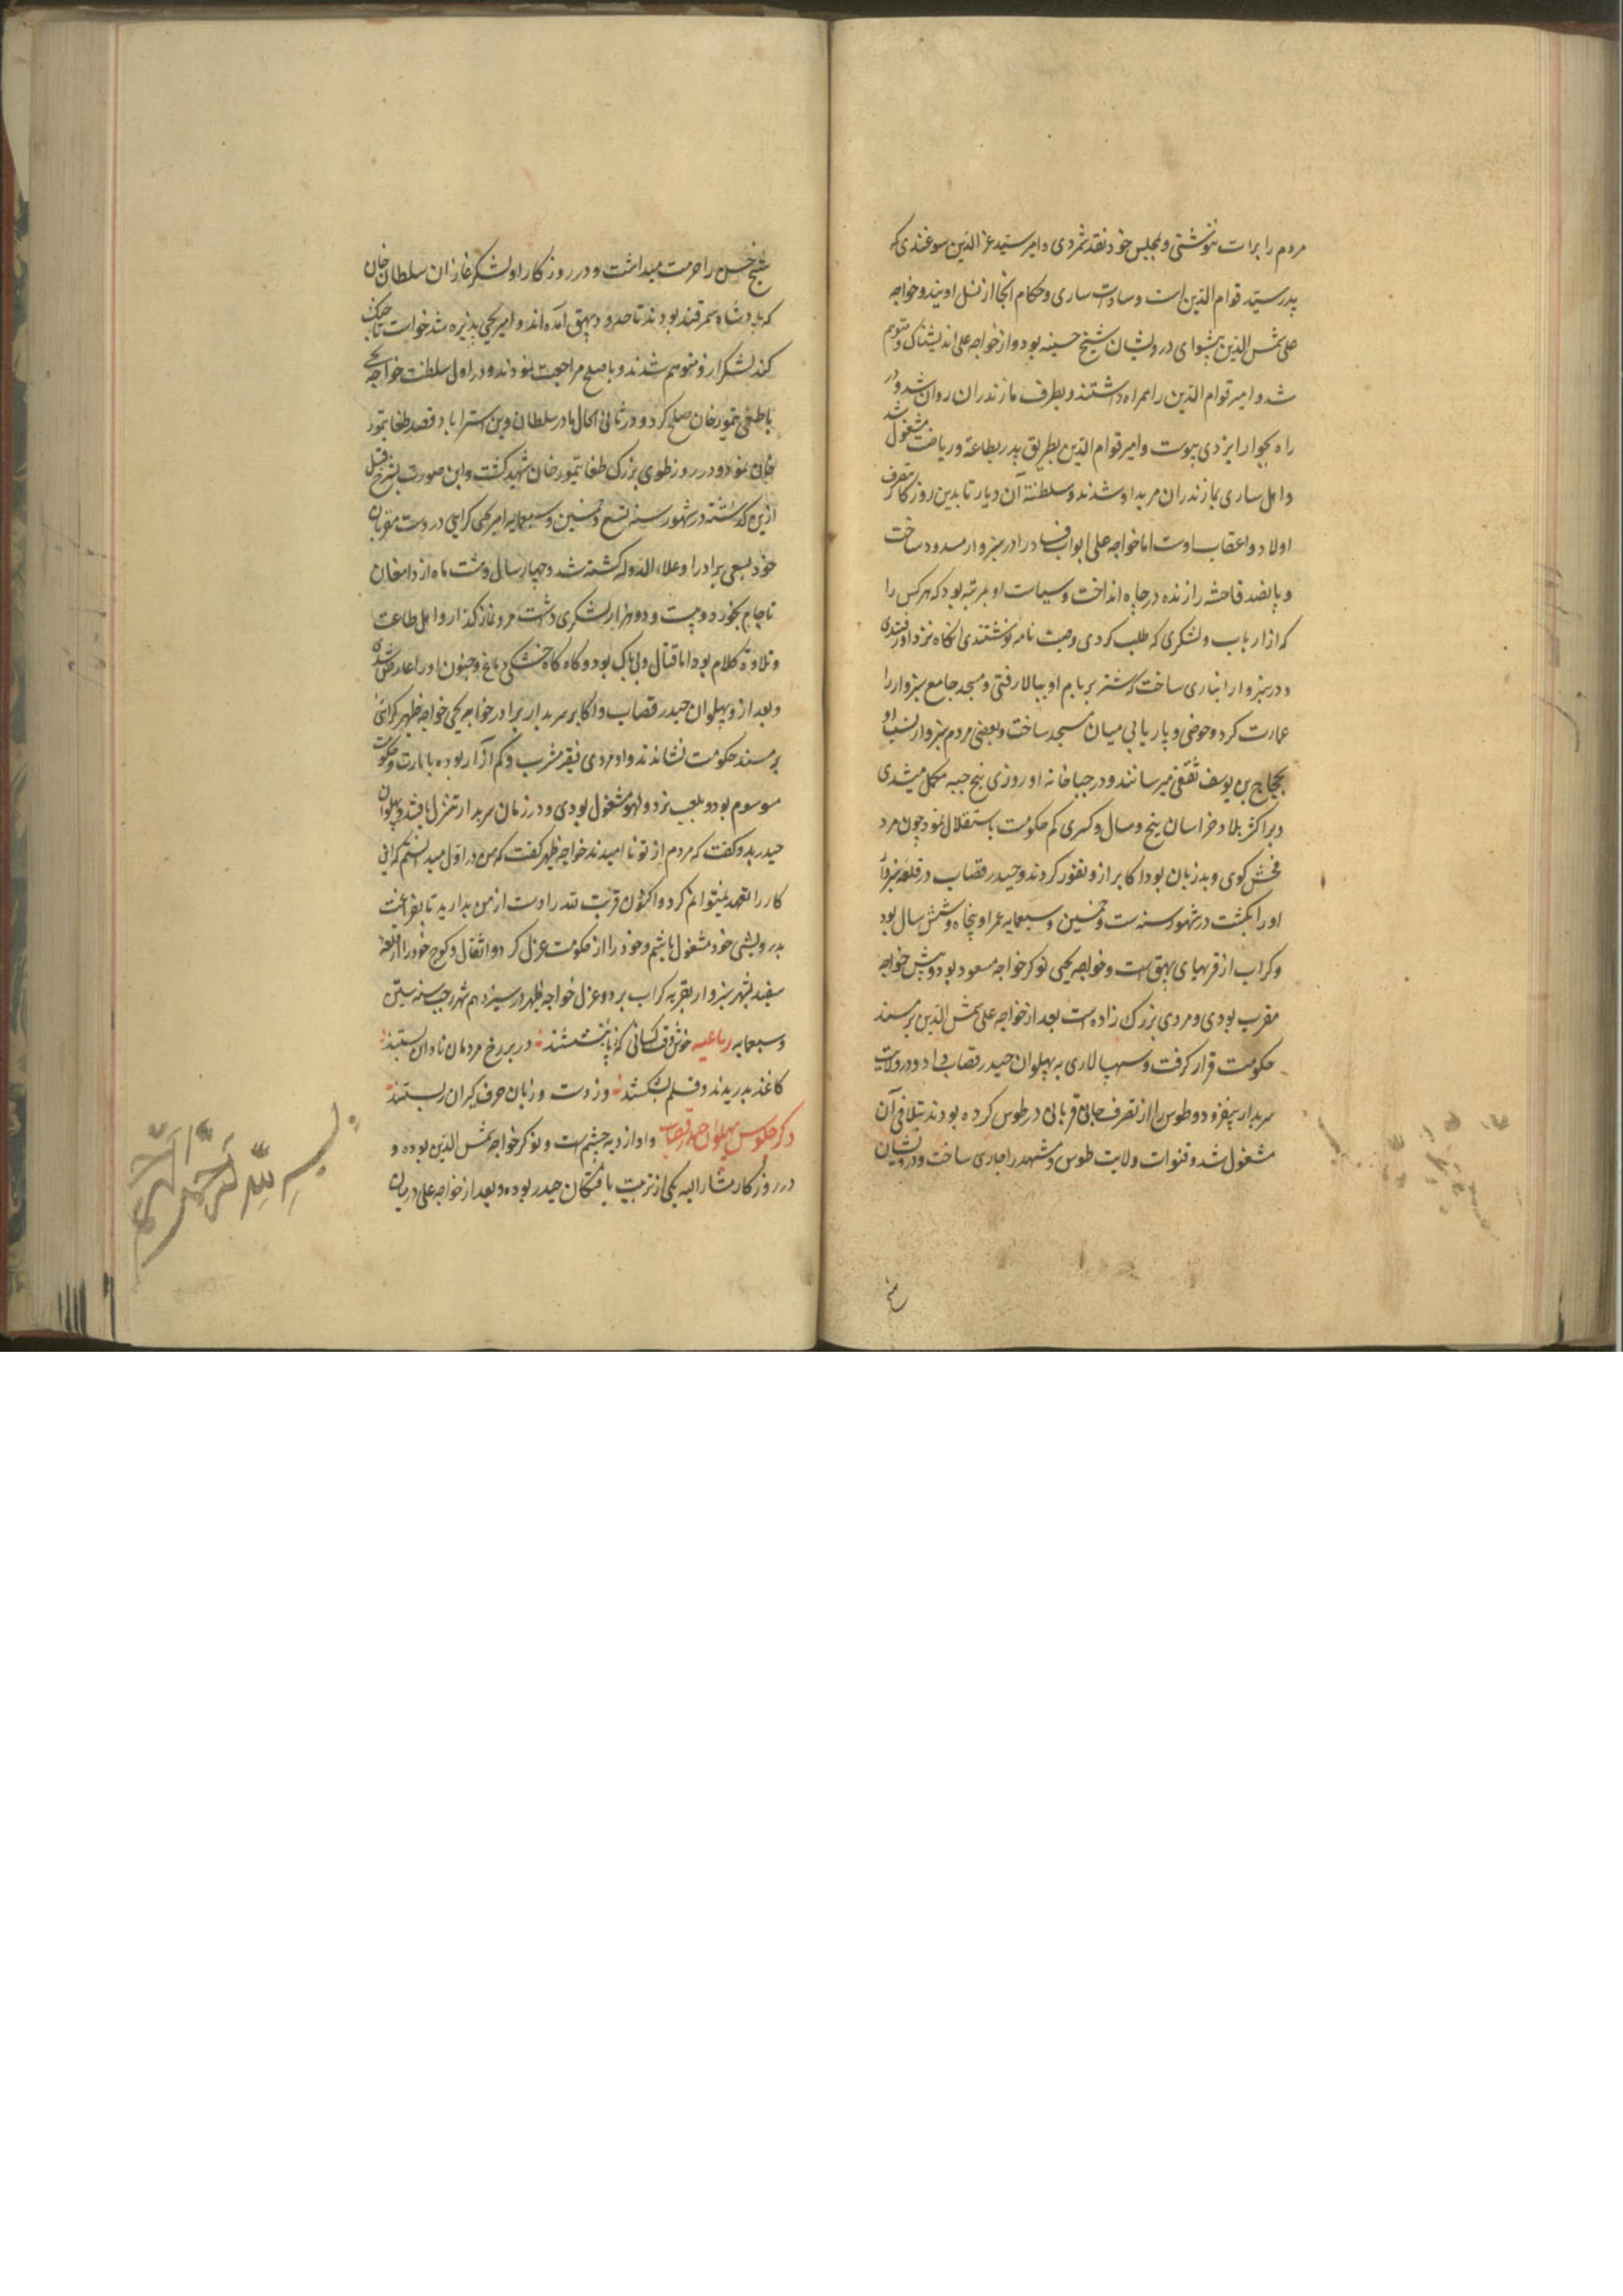 مردم را برات ننوشتی و بمجلس خود نقد شمردی و امیر سید عزالدین سوغندی که
پدر سید قوام الدین است و سادات ساری و حکام آنجا از نسل اویند و خواجه
علی شمس الدین پیشوای درویشان شیخ حسینه بود و از خواجه علی اندیشناک و متوهم
شد و امیر قوام الدین را همراه داشتند و بطرف مازندران روان شد و در
راه بجوار ایزدی پیوست و امیر قوام الدین بطریق پدر بطاعة و ریاضت مشغول شد
و اهل ساری بمازندران مرید او شدند و سلطنة آن دیار تا بدین روزگار بتصرف
اولاد و اعقاب اوست اما خواجه علی ابواب فساد را در سبزوار مسدود ساخت
و پانصد فاحشه را زنده در چاه انداخت و سیاست او بمرتبه بود که هرکس را
که از ارباب و لشکری که طلب کردی وصیت نامه نوشتندی آنگاه نزد او رفتندی
و در سبزوار انباری ساخت که شتر بر بام او ببالا رفتی و مسجد جامع سبزوار را
عمارت کرد و حوضی و پایابی میان مسجد ساخت و بعضی مردم سبزوار نسب او
بحجاج بن یوسف ثقفی میرسانند و در جباخانه او روزی پنج جبه مکمل میشدی
و بر اکثر بلاد خراسان پنج سال و کسری کم حکومت باستقلال نمود چون مرد
فحش گوی و بد زبان بود اکابر ازو نفور کردند و حیدر قصاب در قلعه سبزوار
او را بکشت در شهور سنه ست و خمسین و سبعمایه عمر او پنجاه و شش سال بود
و کراب از قریهای بیهق است و خواجه یحیی نوکر خواجه مسعود بود و پیش خواجه
مقرب بودی و مردی بزرک زاده است بعد از خواجه علی شمس الدین بر مسند
حکومت قرار گرفت و سپهسالاری به پهلوان حیدر قصاب داد و در ولایت
سربدار بیفزود و طوس را از تصرف جانی قربانی در طوس کرده بودند بتلافی آن
مشغول شد و قنوات ولایت طوس و مشهد را جاری ساخت و درویشان
شیخ حسن را حرمت میداشت و در روزگار او لشکر غازان سلطان خان
که پادشاه سمرقند بودند تا حدود بیهق آمده اند و امیر یحیی پذیره شد خواست تا جنگ
کند لشکر ازو متوهم شدند و با صلح مراجعت نمودند و در اول سلطنت خواجه یحیی
با طغی تمور خان صلح کرد و در ثانی الحال مادر سلطان وین استراباد قصد طغا تمور
خان نمود و در روز طوی بزرگ طغا تیمور خان شهید گشت و این صورت بشرح قبل
ازین گذشته در شهور سنه تسع و خمسین و سبعمایه امیر یحیی کرابی در دست مقربان
خود بسعی برادر او علاء الدوله کشته شد و چهار سال و هشت ماه از دامغان
تا جام بخورد و بیست و دو هزار لشکری داشت مرد نماز گذار و اهل طاعت
و تلاوة کلام بود اما قتال و بی باک بود و گاه گاه خشکی دماغ و جنون او را عارض شدی
و بعد از و پهلوان حیدر قصاب و اکابر سربدار برادر خواجه یحیی خواجه ظهیر کرابی را
بر مسند حکومت نشاندند و او مردی فقیر مشرب و کم آزار بوده بامارت و حکومت
موسوم بود و بلعب نرد و لهو مشغول بودی و در زمان سربدار تنزل یافتند و پهلوان
حیدر بدو گفت که مردم از تو ناامیدند خواجه ظهیر گفت که من در اول میدانستم که این
کار را تعهد نمیتوانم کرد و اکنون قربت تقدر اوست از من بدارید تا بفراغت
بدرویشی خود مشغول باشیم و خود را از حکومت عزل کرد و اثقال و کوچ خود را از قلعه
سفید شهر سبزوار بقریه کراب برد و عزل خواجه ظهیر در سیزدهم شهر رجب سنه ستین
و سبعمایه رباعیه خوش وقت کسانی که ز پا بنشستند در بر رخ مردمان نادان بستند
کاغذ بدریدند و قلم بشکستند وز دست و زبان حرف گیران رستند
ذکر حکومت پهلوان حیدر قصاب و او از دیه چشم است و نوکر خواجه شمس الدین بوده و
در روزگار مشار الیه یکی از تربیت یافتگان حیدر بوده و بعد از خواجه علی در میان
بسم الله الرحمن الرحیم
شیخ